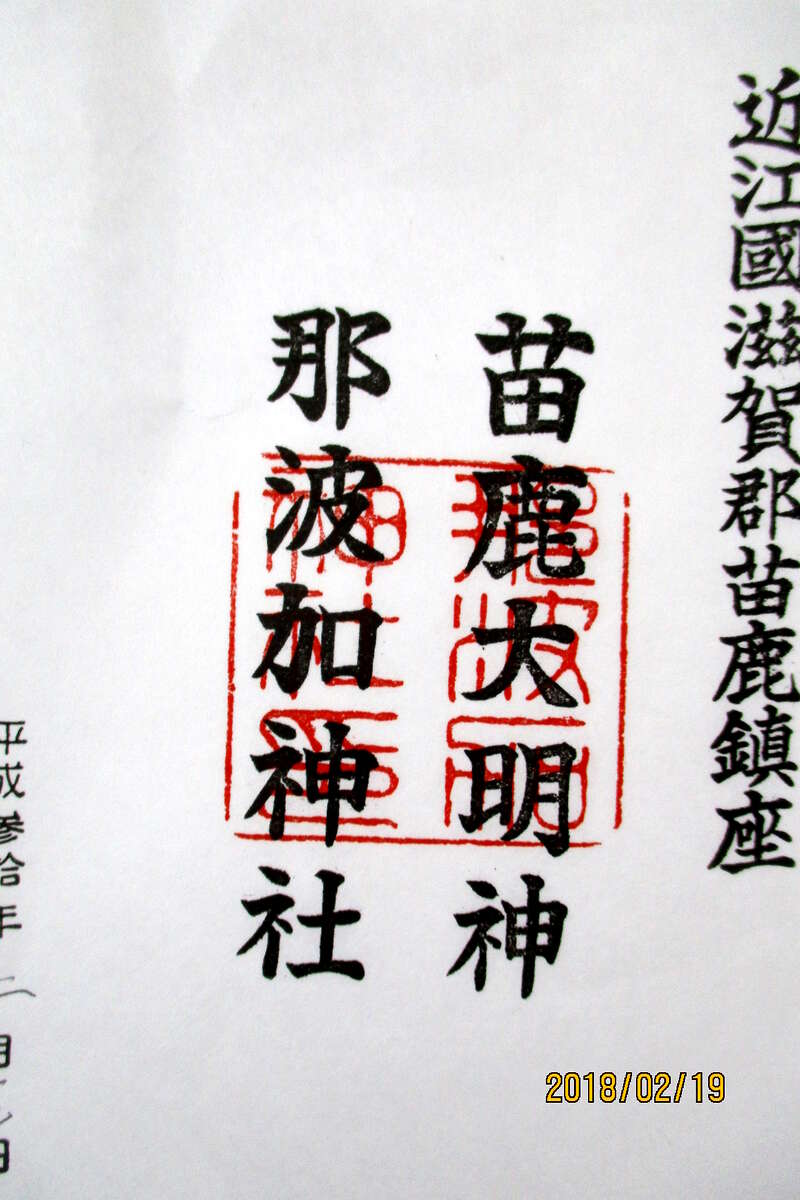 近江國滋賀郡苗鹿鎮座
苗鹿大明神
那波加神社
平成参拾年二月 日
2018/02/19